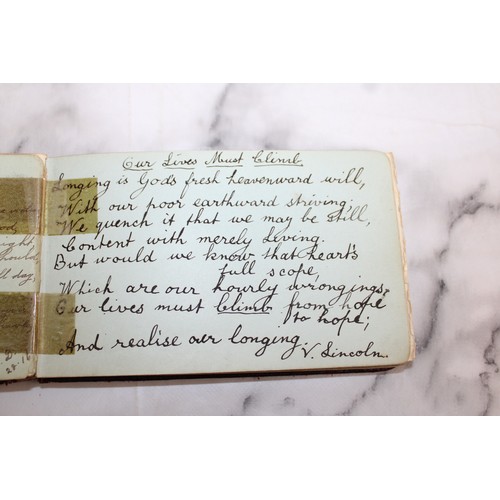 Our Lives Must Climb.
Longing is God's fresh heavenward will,
With our poor earthward striving.
We quench it that we may be still,
Content with merely Living.
But would we know that heart's
full scope,
Which are our hourly wrongings,
Our lives must Climb from hope
to hope;
And realise our longing.
V. Lincoln.
ight,
should,
ll day,